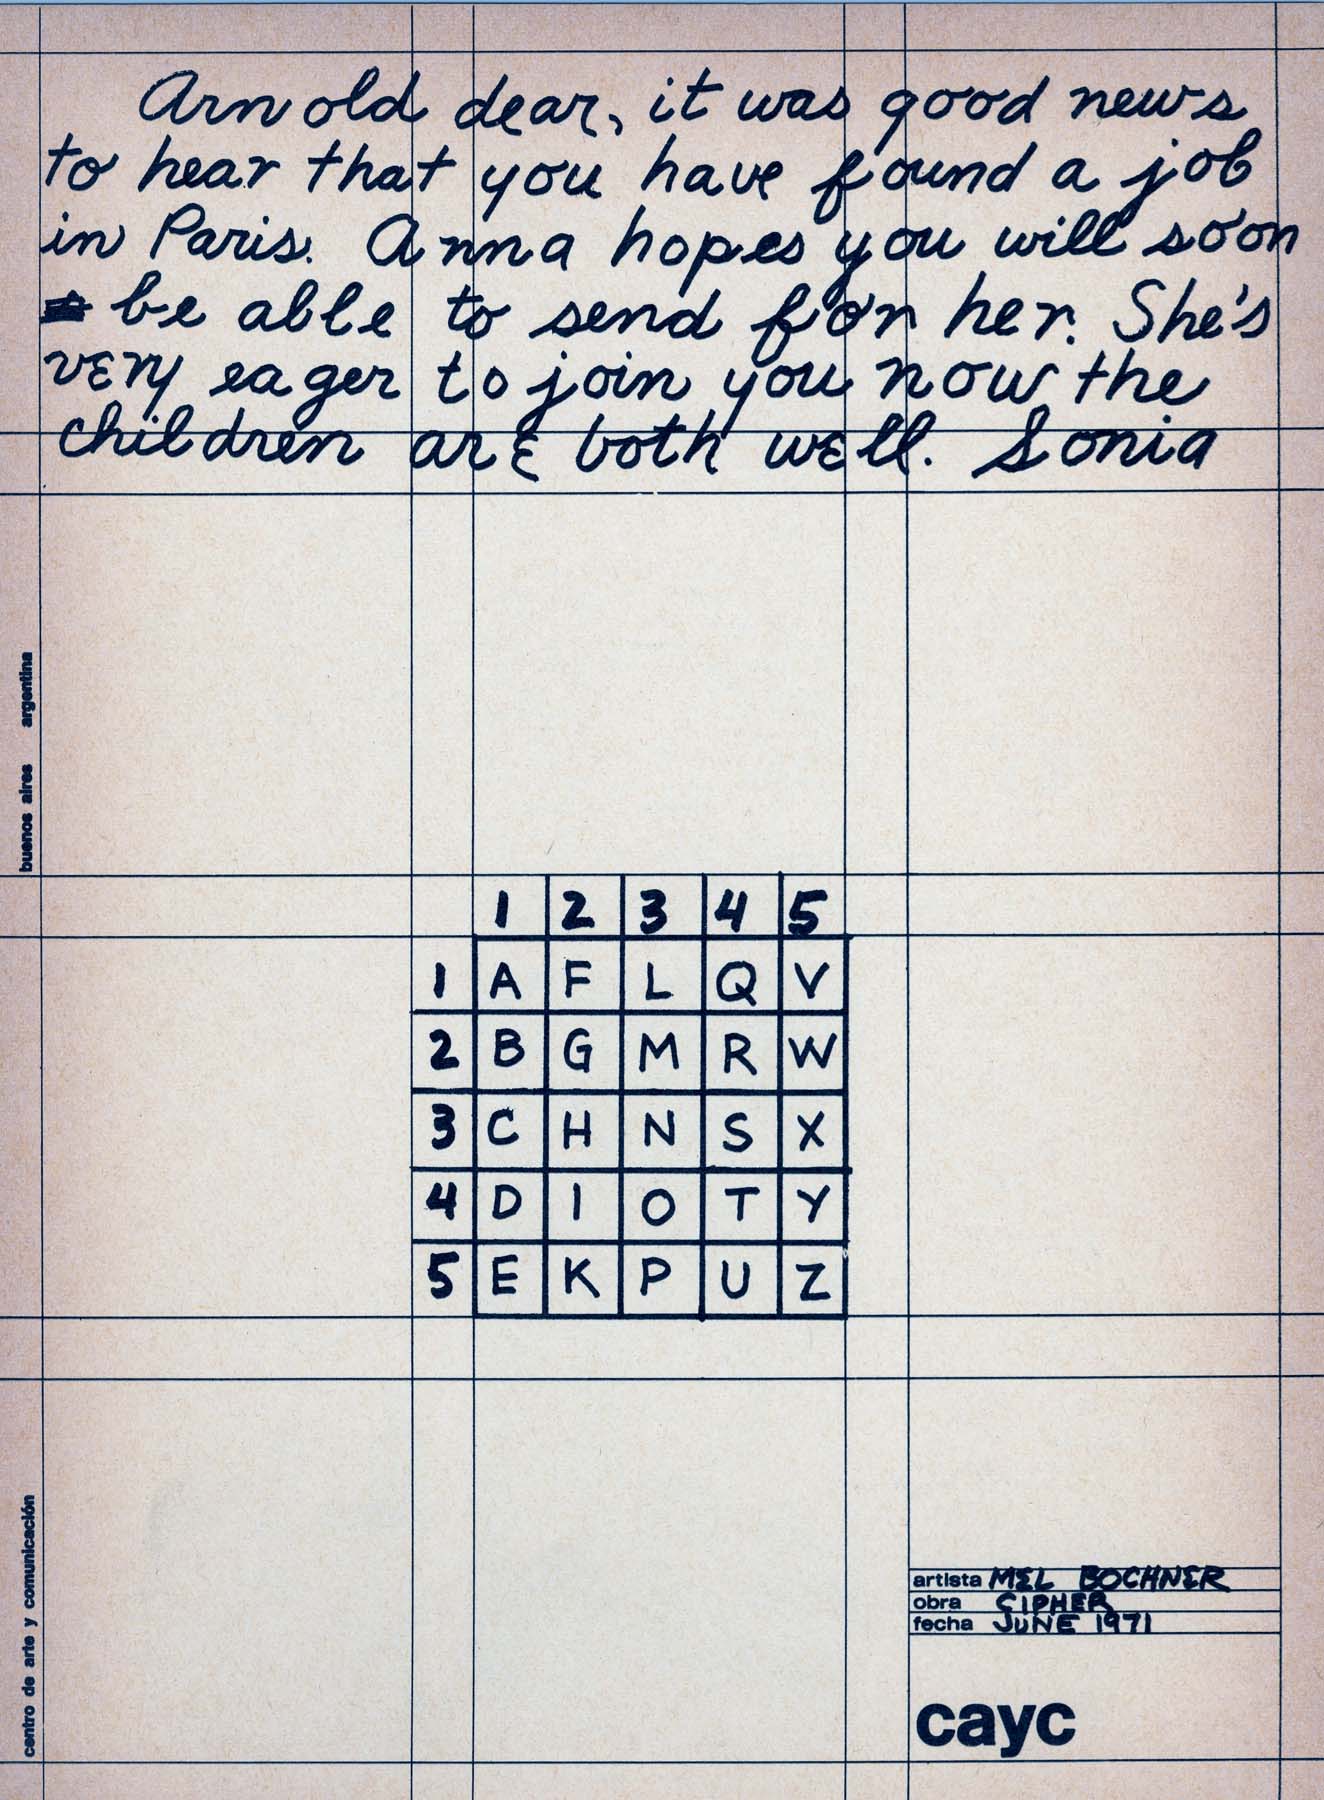 Arnold dear, it was good news
to hear that you have found a job
in Paris. Anna hopes you will soon
be able to send for her. She's
very eager to join you now the
children are both well. Sonia
buenos aires argentina
1 2 3 4 5
1 A F L Q V
2 B G M R W
3 C H N S X
4 D I O T Y
5 E K P U Z
centro de arte y comunicación
artista MEL BOCHNER
obra CIPHER
fecha JUNE 1971
cayc